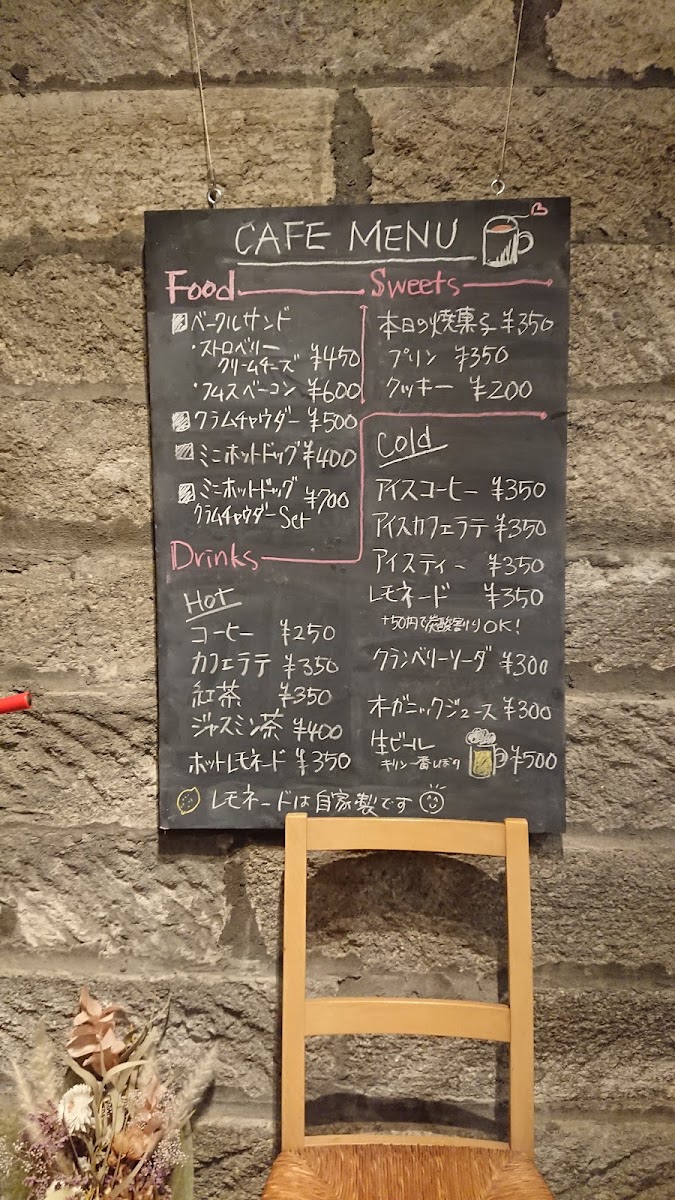 CAFE MENU
Food
ベーグルサンド
・ストロベリー
クリームチーズ ¥450
・フムスベーコン ¥600
クラムチャウダー ¥500
ミニホットドッグ ¥400
ミニホットドッグ
クラムチャウダーSet ¥700
Sweets
本日の焼菓子 ¥350
プリン ¥350
クッキー ¥200
Drinks
Hot
コーヒー ¥250
カフェラテ ¥350
紅茶 ¥350
ジャスミン茶 ¥400
ホットレモネード ¥350
Cold
アイスコーヒー ¥350
アイスカフェラテ ¥350
アイスティー ¥350
レモネード ¥350
+50円で炭酸割りOK!
クランベリーソーダ ¥300
オーガニックジュース ¥300
生ビール
キリン一番しぼり ¥500
レモネードは自家製です